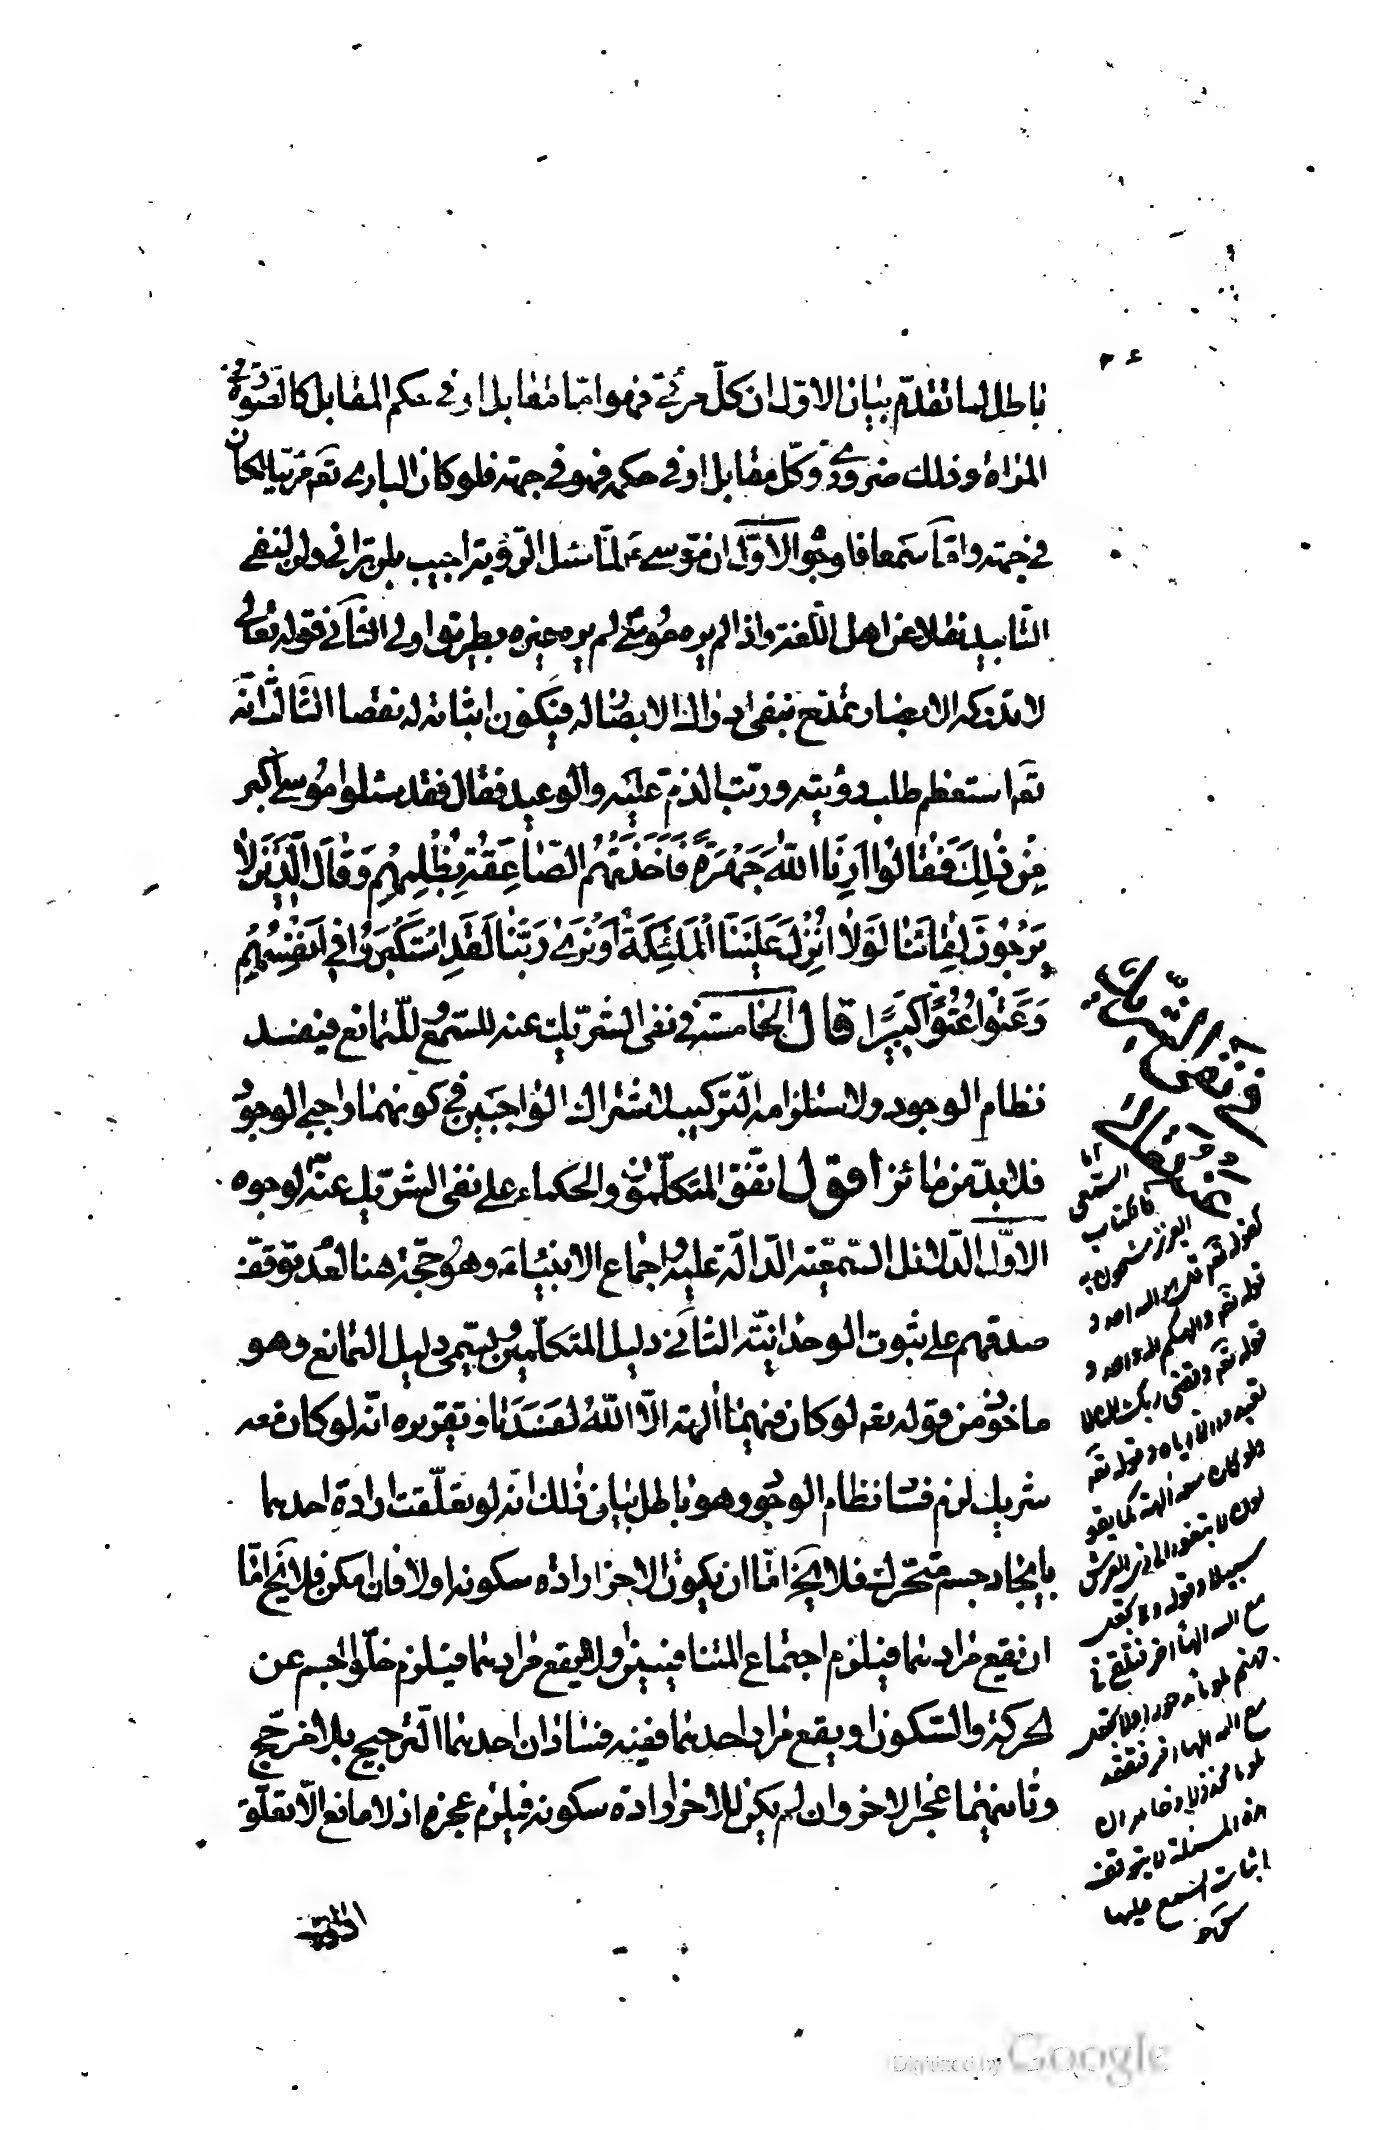 باطل لما تقدم بيان الاول ان كل مرئى فهو اما مقابل او فى حكم المقابل كالصورة فى
المراة و ذلك ضرورى و كل مقابل او فى حكمه فهو فى جهة فلو كان البارى تعم مرئيا لكان
فى جهة و اما سمعا فلوجوه الاول ان موسى ع لما سئل الرؤية اجيب بلن ترانى و لن لنفى
التابيد نقلا عن اهل اللغة و اذا لم يره موسى لم يره غيره بطريق اولى الثانى قوله تعالى
لا تدركه الابصار تمدح بنفى ادراك الابصار له فيكون اثباته له نقصا الثالث انه
تعم استعظم طلب رؤيته و رتب الذم عليه و الوعيد فقال فقد سئلوا موسى اكبر
مِنْ ذٰلِكَ فَقَالُوا اَرِنَا اللّٰهَ جَهْرَةً فَاَخَذَتْهُمُ الصَّاعِقَةُ بِظُلْمِهِمْ وَقَالَ الَّذِينَ لا
يَرْجُونَ لِقَائَنَا لَوْلا اُنْزِلَ عَلَيْنَا الْمَلٰئِكَةُ اَوْ نَرٰى رَبَّنَا لَقَدِ اسْتَكْبَرُوا فِى اَنْفُسِهِمْ
وَعَتَوْا عُتُوًّا كَبِيرًا قال الخامسة فى نفى الشريك عنه للسمع و للتمانع فيفسد
نظام الوجود و لاستلزامه التركيب لاشتراك الواجبين فى كونهما واجبى الوجود
فلا بد من مائز اقول اتفق المتكلمون و الحكماء على نفى الشريك عنه لوجوه
الاول الدلائل السمعية الدالة عليه و اجماع الانبياء و هو حجة هنا لعدم توقف
صدقهم على ثبوت الوحدانية الثانى دليل المتكلمين و يسمى دليل التمانع و هو
ماخوذ من قوله تعم لو كان فيهما الهة الا الله لفسدتا و تقريره انه لو كان معه
شريك لزم فساد نظام الوجود و هو باطل بيان ذلك انه لو تعلقت ارادة احدهما
بايجاد جسم متحرك فلا يخ اما ان يكون للاخر ارادة سكونه او لا فان امكن فلا يخ اما
ان يقع مرادهما فيلزم اجتماع المتنافيين او لا يقع مرادهما فيلزم خلو الجسم عن
الحركة و السكون او يقع مراد احدهما ففيه فسادان احدهما الترجيح بلا مرجح
و ثانيهما عجز الاخر و ان لم يكن للاخر ارادة سكونه فيلزم عجزه اذ لا مانع الا تعلق
فى نفى الشريك
عنه تعالى
اما السمعى
فالكتاب
العزيز مشحون به
كقوله تعم قل هو الله احد و
قوله تعم و الهكم اله واحد و
قوله تعم و قضى ربك ان لا
تعبدوا الا اياه و قوله تعم
و لو كان معه الهة كما يقو
لون لا بتغوا الى ذى العرش
سبيلا و قوله و لا تجعل
مع الله الها اخر فتلقى فى
جهنم ملوما مدحورا لا تجعل
مع الله الها اخر فتقعد
هذه المسئلة لا يتوقف
اثبات السمع عليها
ارادة
Digitized by Google